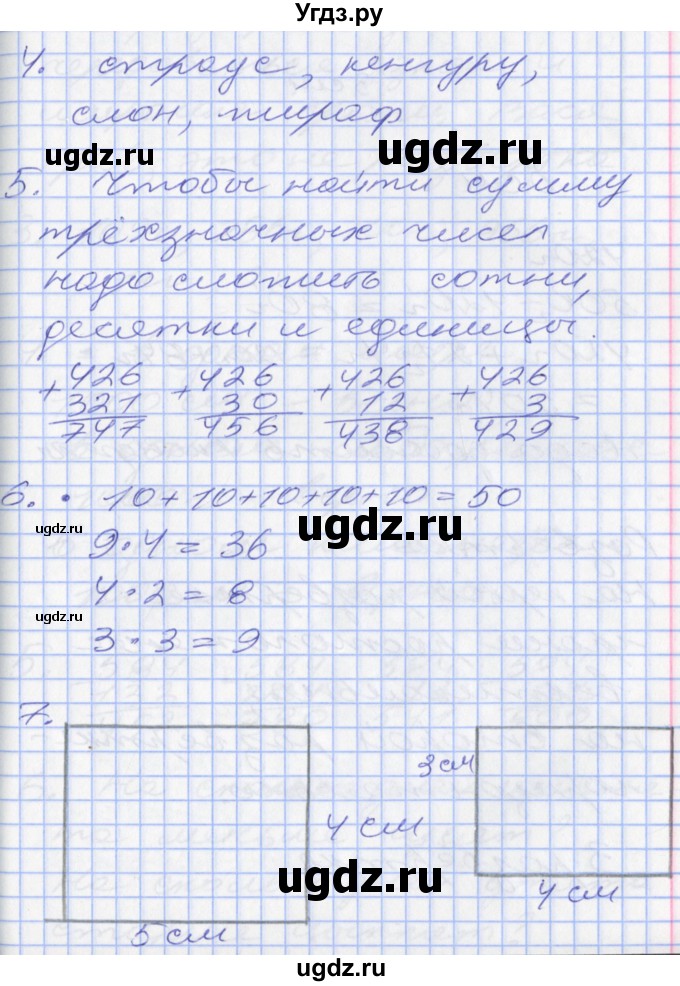 Угдз.ру
4. страус, кенгуру,
слон, жираф
ugdz.ru
ugdz.ru
5. Чтобы найти сумму
трёхзначных чисел
надо сложить сотни,
десятки и единицы.
+426 +426 +426 +426
321 30 12 3
747 456 438 429
6. · 10+10+10+10+10=50
ugdz.ru
ugdz.ru
9·4=36
4·2=8
ugdz.ru
3·3=9
7.
3 см
4 см
ugdz.ru
4 см
5 см
ugdz.ru